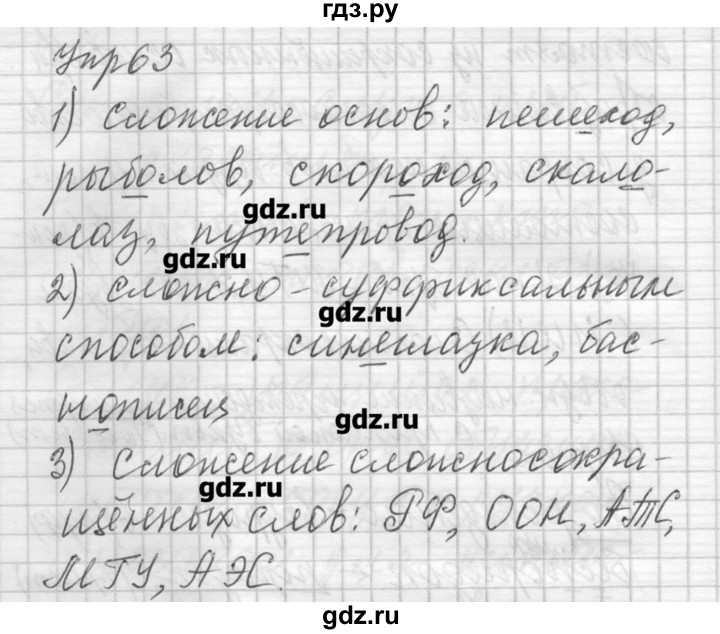 гдз.ру
Упр63
1) сложение основ: пешеход,
рыболов, скороход, скало-
gdz.ru
лаз, путепровод.
gdz.ru
2) сложно-суффиксальным
gdz.ru
способом: синеглазка, бас-
нописец
gdz.ru
3) Сложение сложносокра-
gdz.ru
щённых слов: РФ, ООН, АТС,
МГУ, АЭС.
gdz.ru